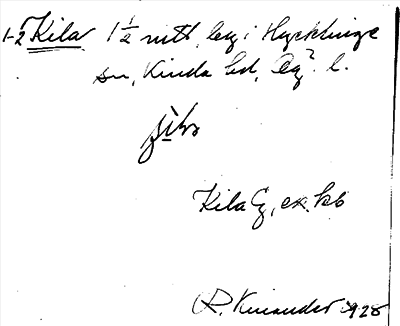 1-2 Kila 1½ mtl, lag i Hycklinge
sn, Kinda hd, Ög. l.
Kila G, ex. kb
R. Kinander 1928